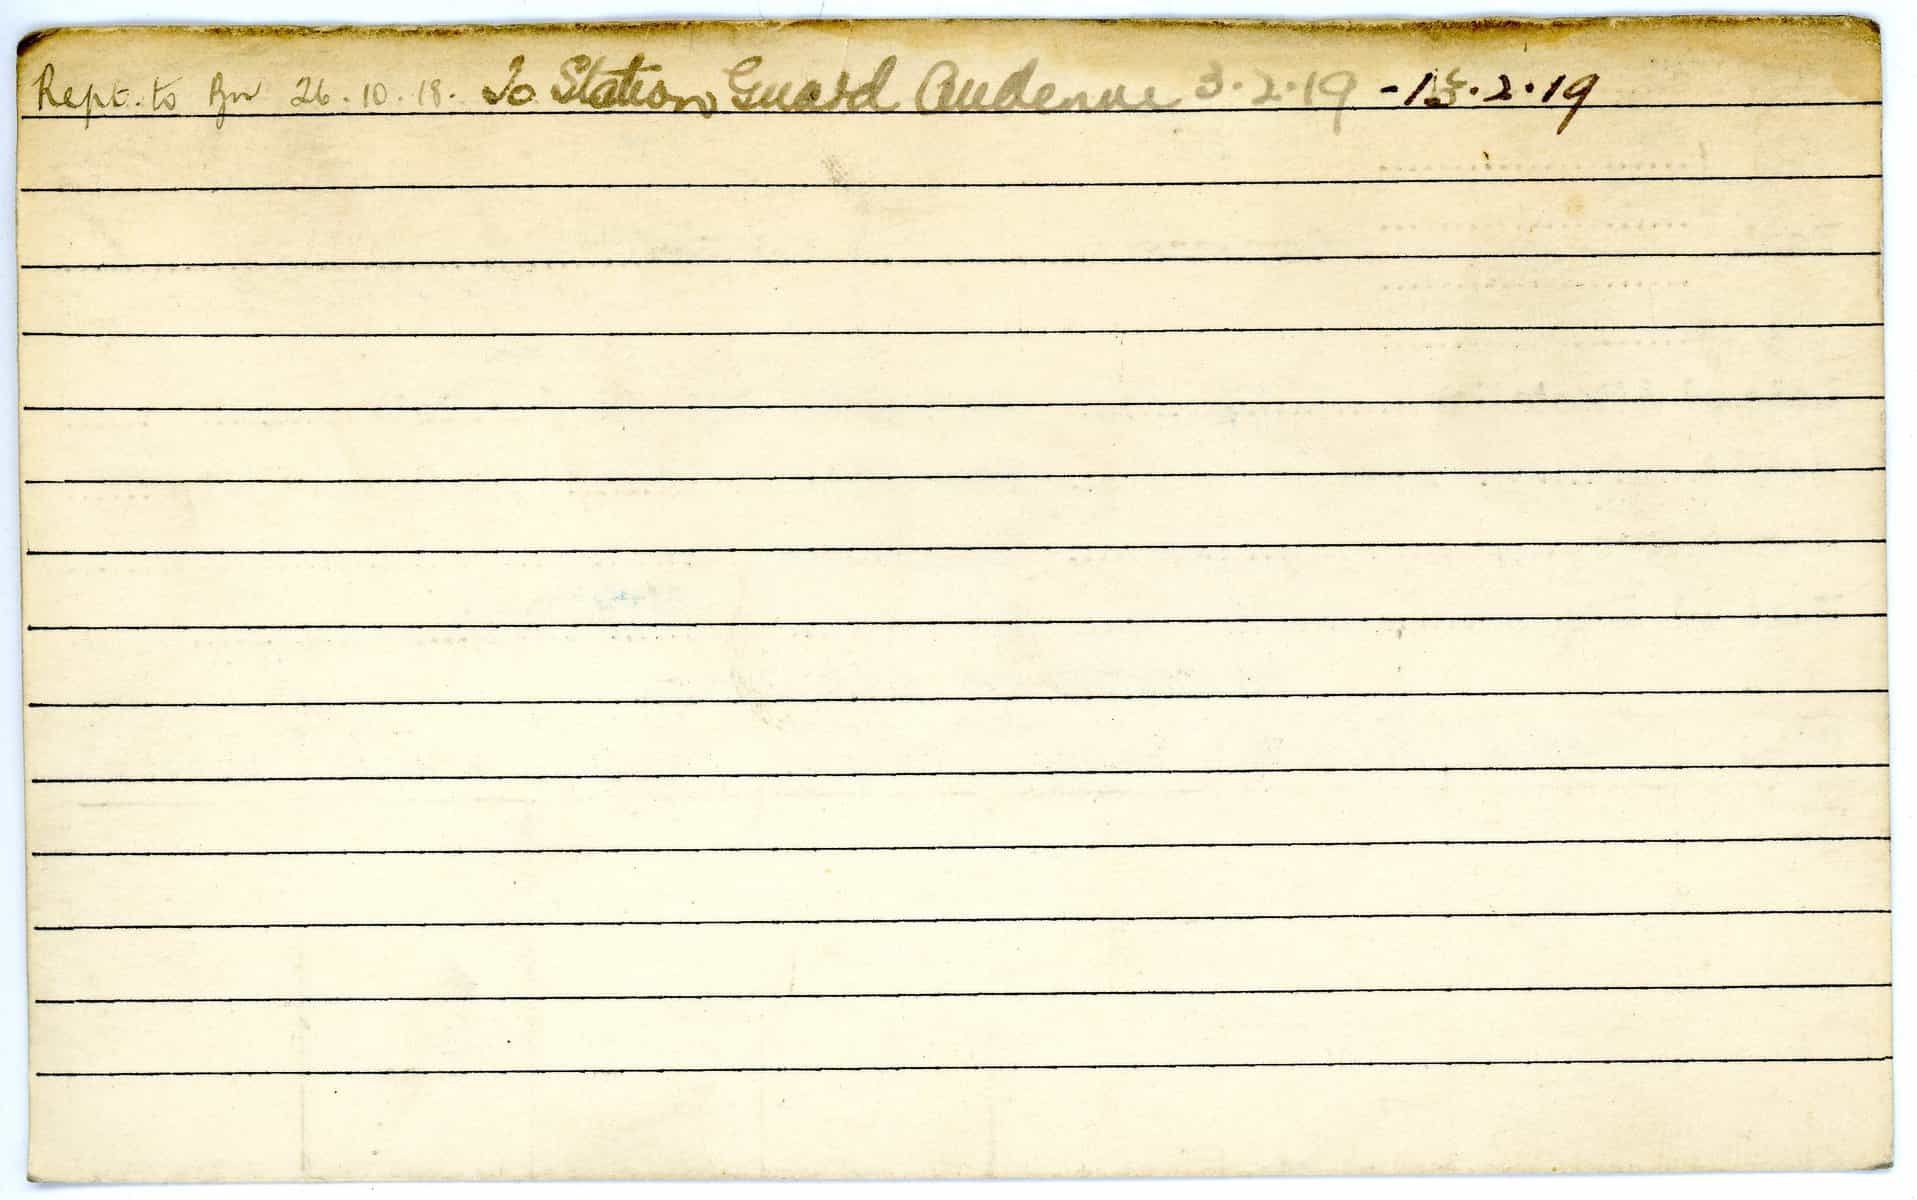 Rept. to Bn 26.10.18. To Station Guard Andenne 3.2.19 - 2.19